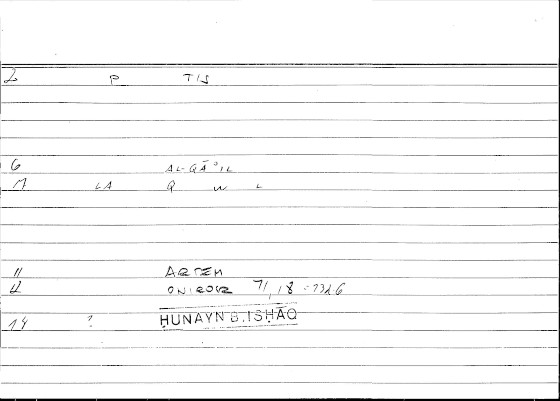 2 P TIS
6 AL-QĀʾIL
M LA Q W L
11 ARTEM
12 ONIROCR 71,18 -
14 ? ḤUNAYN B. ISḤĀQ